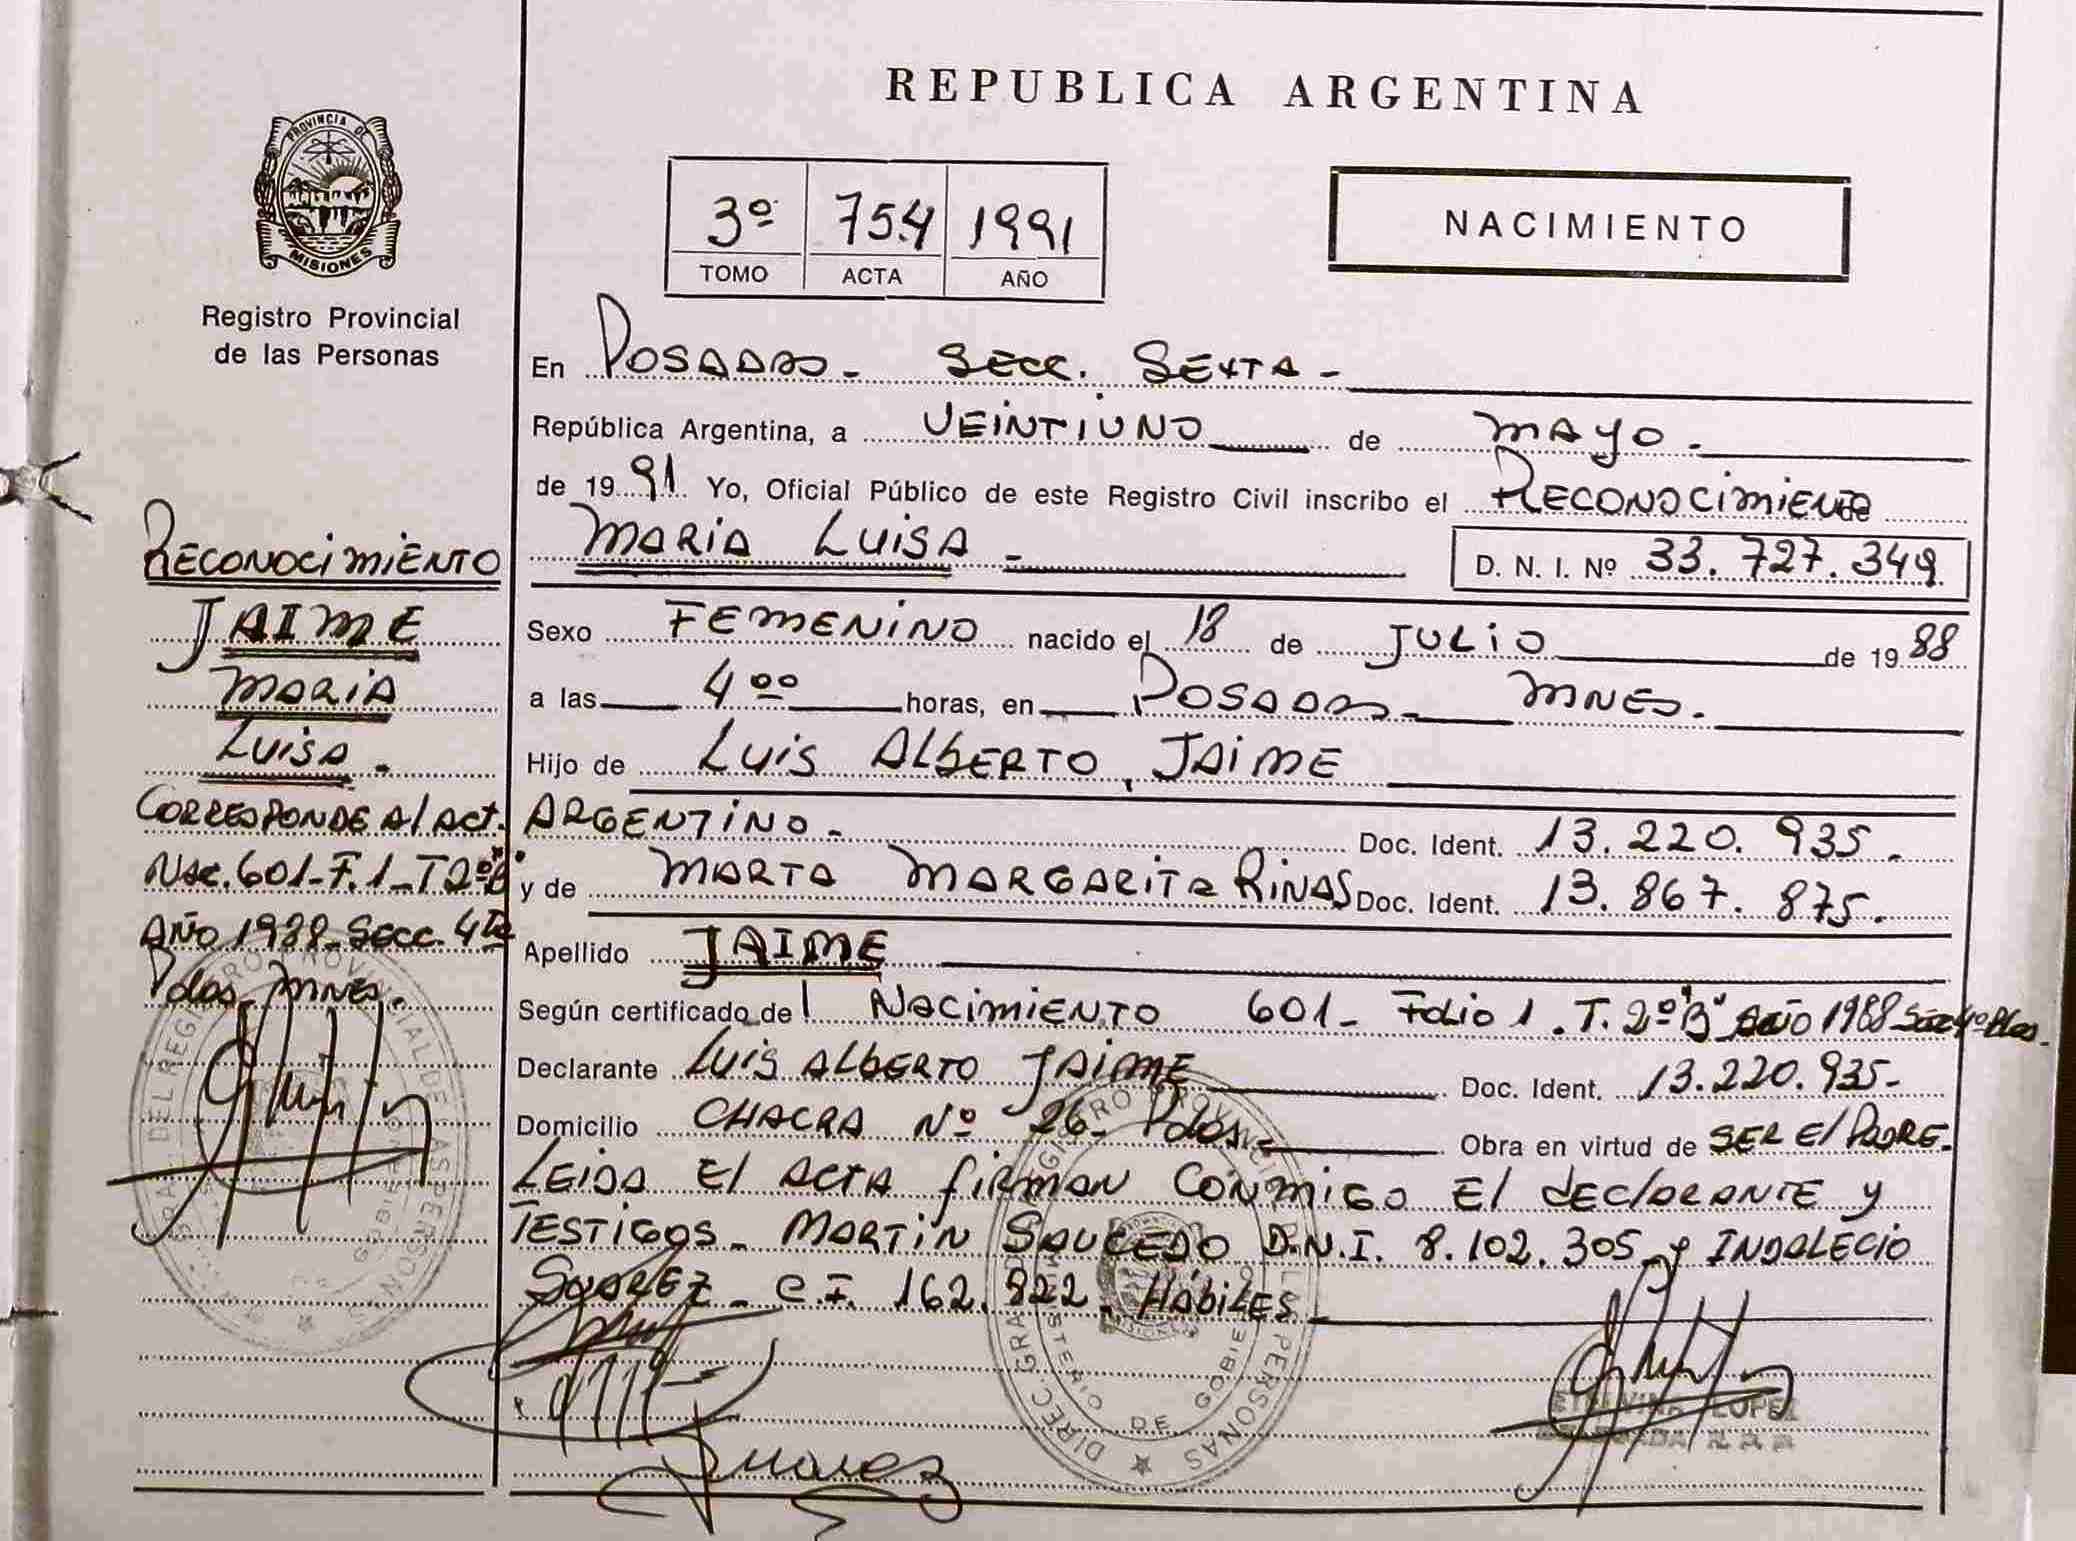 REPUBLICA ARGENTINA
PROVINCIA DE
MISIONES
Registro Provincial
de las Personas
3º 754 1991
TOMO ACTA AÑO
NACIMIENTO
En POSADAS - SECC. SEXTA -
República Argentina, a VEINTIUNO de MAYO -
de 1991 Yo, Oficial Público de este Registro Civil inscribo el RECONOCIMIENTO
MARIA LUISA - D. N. I. Nº 33.727.349
Sexo FEMENINO nacido el 18 de JULIO de 1988
a las 4 ºº horas, en POSADAS - MNES.
Hijo de LUIS ALBERTO JAIME
ARGENTINO - Doc. Ident. 13.220.935 -
y de MARTA MARGARITA RINAS Doc. Ident. 13.867.875 -
Apellido JAIME
Según certificado de Nacimiento 601 - Folio 1. T. 2º "B" Año 1988 Secc 4º Pdas -
Declarante LUIS ALBERTO JAIME Doc. Ident. 13.220.935 -
Domicilio CHACRA Nº 26 - Pdas - Obra en virtud de SER El PADRE -
LEIDA El ACTA firman conmigo El declarante y
TESTIGOS - MARTIN SAUCEDO D.N.I. 8.102.305 y INDALECIO
SUAREZ - C.I. 162.822 - HábilES -
RECONOCIMIENTO
JAIME
MARIA
LUISA -
CORRESPONDE Al Act.
Nac. 601 - F. 1 - T 2º "B"
AÑO 1988 - Secc. 4ta
Pdas - MNES.
DIREC. GRAL. DEL REGISTRO PROVINCIAL DE LAS PERSONAS
MINISTERIO DE GOBIERNO
LOPEZ